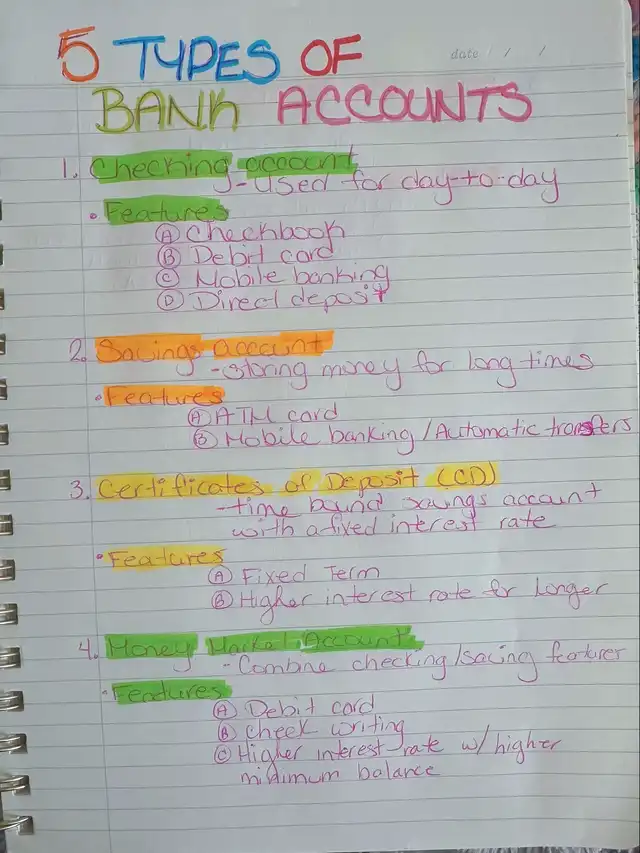 5 TYPES OF
date / /
BANK ACCOUNTS
1. Checking account
- Used for day-to-day
• Features
Ⓐ Checkbook
Ⓑ Debit card
Ⓒ Mobile banking
Ⓓ Direct deposit
2. Savings account
- storing money for long times
• Features
Ⓐ ATM card
Ⓑ Mobile banking / Automatic transfers
3. Certificates of Deposit (CD)
- time bound savings account
with a fixed interest rate
• Features
Ⓐ Fixed Term
Ⓑ Higher interest rate for longer
4. Money Market Account
- Combine checking/saving features
• Features
Ⓐ Debit card
Ⓑ Check writing
Ⓒ Higher interest rate w/ higher
minimum balance